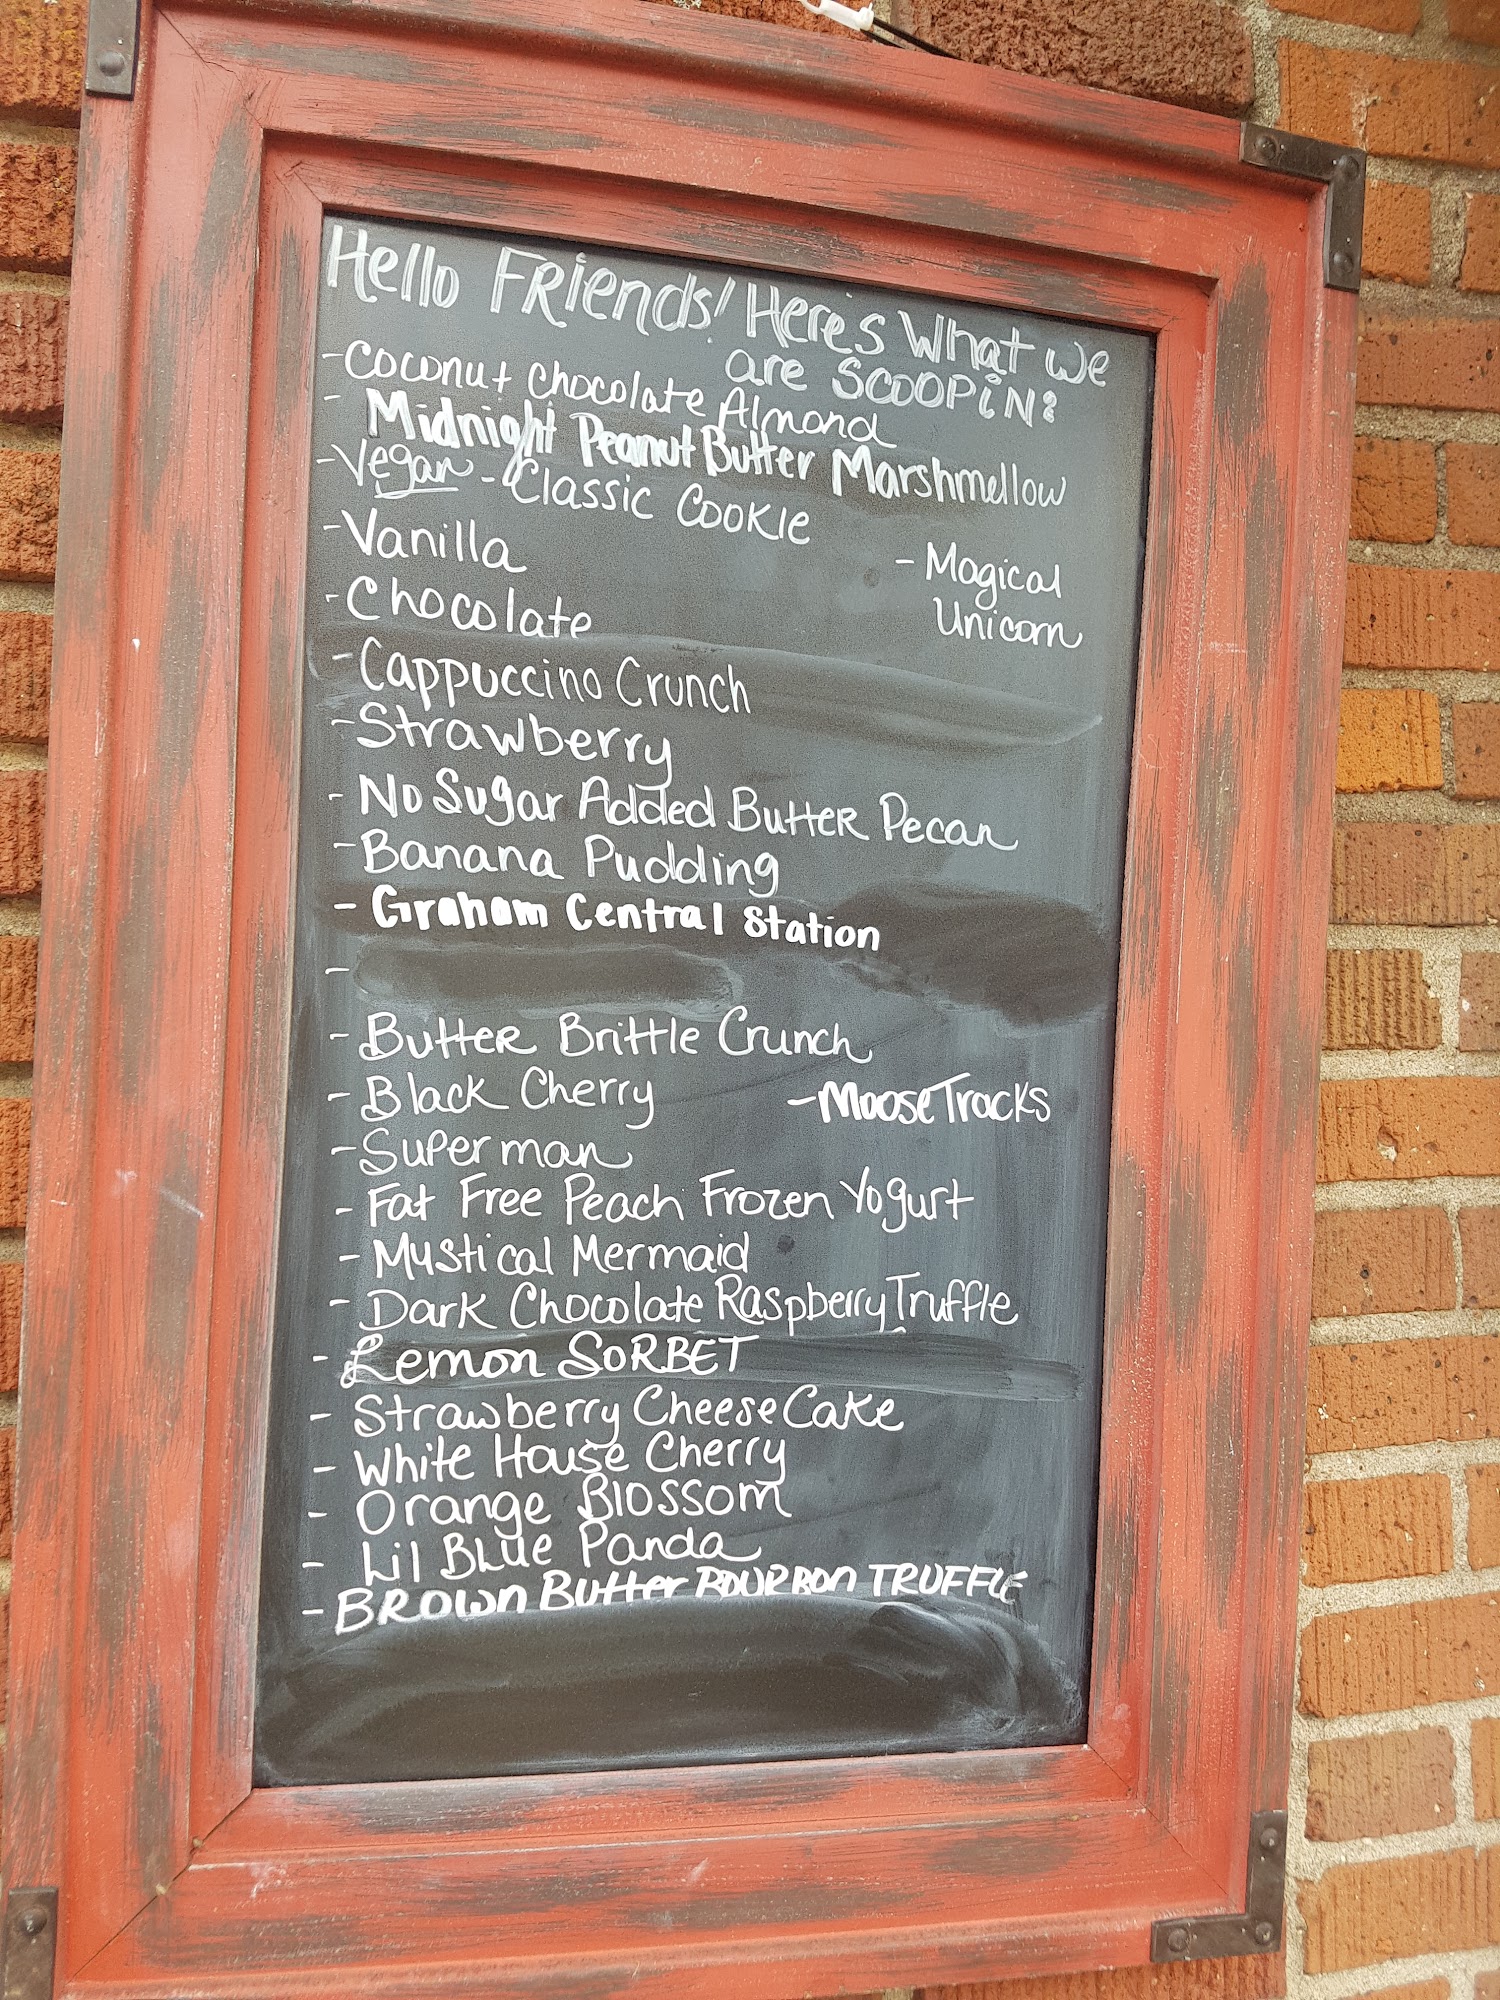 Hello Friends! Here's What We
are SCOOPiN:
- Coconut Chocolate Almond
- Midnight Peanut Butter Marshmellow
- Vegan - Classic Cookie
- Vanilla
- Magical
Unicorn
- Chocolate
- Cappuccino Crunch
- Strawberry
- No Sugar Added Butter Pecan
- Banana Pudding
- Graham Central Station
-
- Butter Brittle Crunch
- Black Cherry
- Moose Tracks
- Superman
- Fat Free Peach Frozen Yogurt
- Mystical Mermaid
- Dark Chocolate Raspberry Truffle
- Lemon SORBET
- Strawberry CheeseCake
- White House Cherry
- Orange Blossom
- Lil Blue Panda
- BROWN Butter BOURBON TRUFFLE